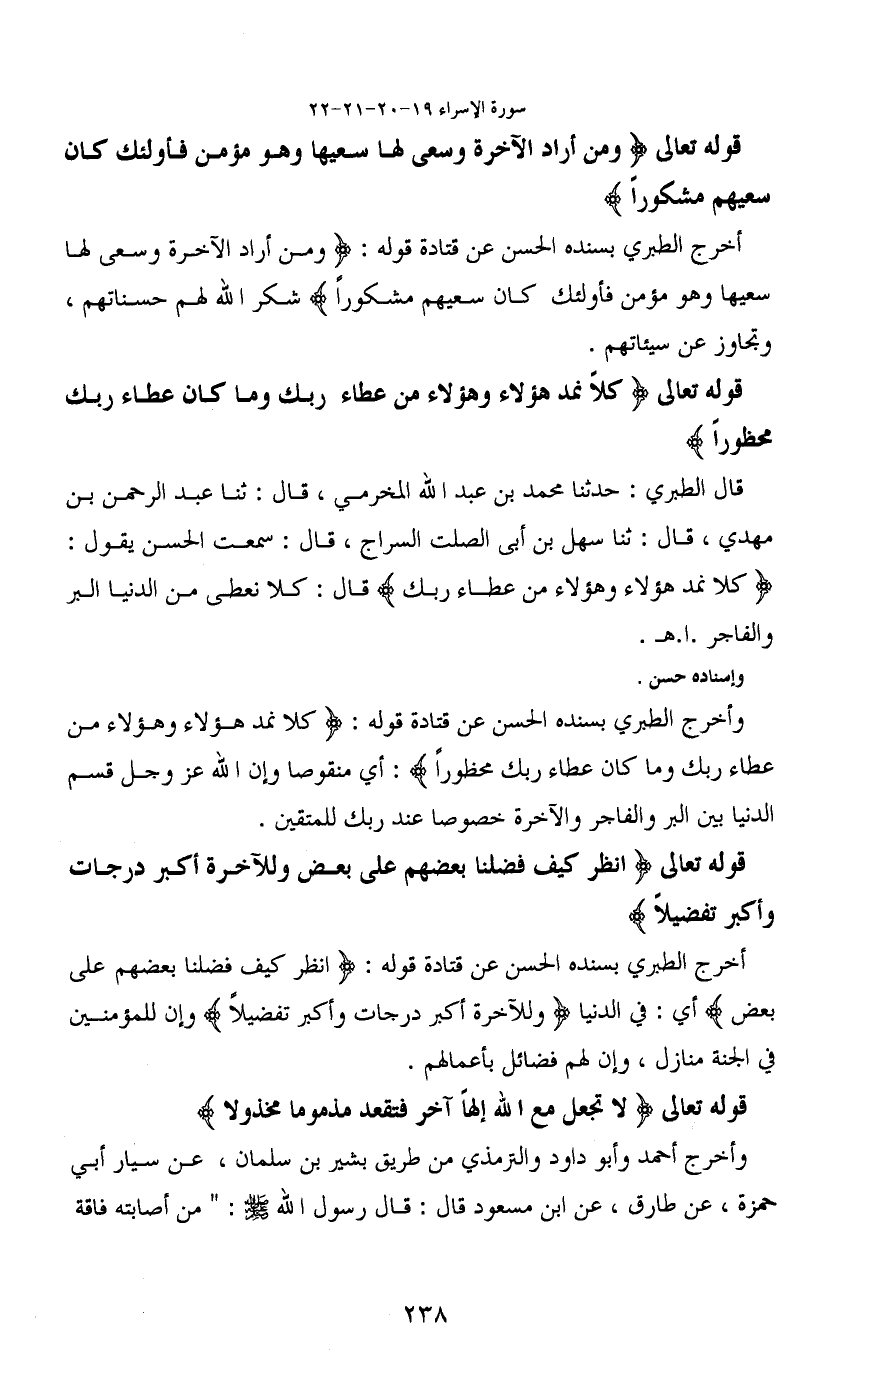 سورة الإسراء ١٩-٢٠-٢١-٢٢
قوله تعالى ﴿ ومن أراد الآخرة وسعى لها سعيها وهو مؤمن فأولئك كان
سعيهم مشكوراً ﴾
أخرج الطبري بسنده الحسن عن قتادة قوله : ﴿ ومن أراد الآخرة وسعى لها
سعيها وهو مؤمن فأولئك كان سعيهم مشكوراً ﴾ شكر الله لهم حسناتهم ،
وتجاوز عن سيئاتهم .
قوله تعالى ﴿ كلاً نمد هؤلاء وهؤلاء من عطاء ربك وما كان عطاء ربك
محظوراً ﴾
قال الطبري : حدثنا محمد بن عبد الله المخرمي ، قال : ثنا عبد الرحمن بن
مهدي ، قال : ثنا سهل بن أبى الصلت السراج ، قال : سمعت الحسن يقول :
﴿ كلا نمد هؤلاء وهؤلاء من عطاء ربك ﴾ قال : كلا نعطى من الدنيا البر
والفاجر .ا.هـ .
وإسناده حسن .
وأخرج الطبري بسنده الحسن عن قتادة قوله : ﴿ كلا نمد هؤلاء وهؤلاء من
عطاء ربك وما كان عطاء ربك محظوراً ﴾ : أي منقوصا وإن الله عز وجل قسم
الدنيا بين البر والفاجر والآخرة خصوصا عند ربك للمتقين .
قوله تعالى ﴿ انظر كيف فضلنا بعضهم على بعض وللآخرة أكبر درجات
وأكبر تفضيلاً ﴾
أخرج الطبري بسنده الحسن عن قتادة قوله : ﴿ انظر كيف فضلنا بعضهم على
بعض ﴾ أي : في الدنيا ﴿ وللآخرة أكبر درجات وأكبر تفضيلاً ﴾ وإن للمؤمنين
في الجنة منازل ، وإن لهم فضائل بأعمالهم .
قوله تعالى ﴿ لا تجعل مع الله إلهاً آخر فتقعد مذموما مخذولا ﴾
وأخرج أحمد وأبو داود والترمذي من طريق بشير بن سلمان ، عن سيار أبي
حمزة ، عن طارق ، عن ابن مسعود قال : قال رسول الله ﷺ : " من أصابته فاقة
٢٣٨